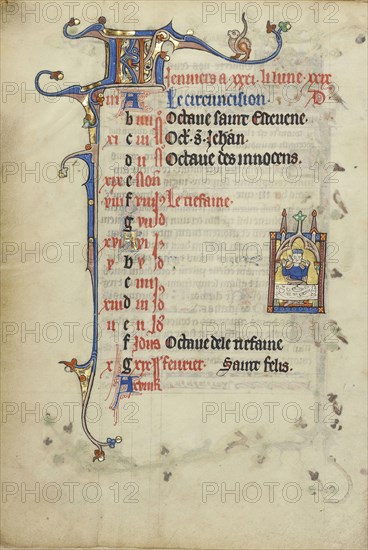 KL Jenviers a. xxxi. li lune. xxix
iii A Le circuncision. D
b iiii Octaue saint Esteuene.
xi c iii Oct. s. Jehan.
d ii Octaue des innocens.
xix e Non
viii f viii Id Le tiefaine.
g vii Id
xvi vi Id
v b v Id
c iiii Id
xiii d iii Id
ii e ii Id
f Idus Octaue de le tiefaine
x g xix feurier. Saint felis.
A xviii
PHOTO 12